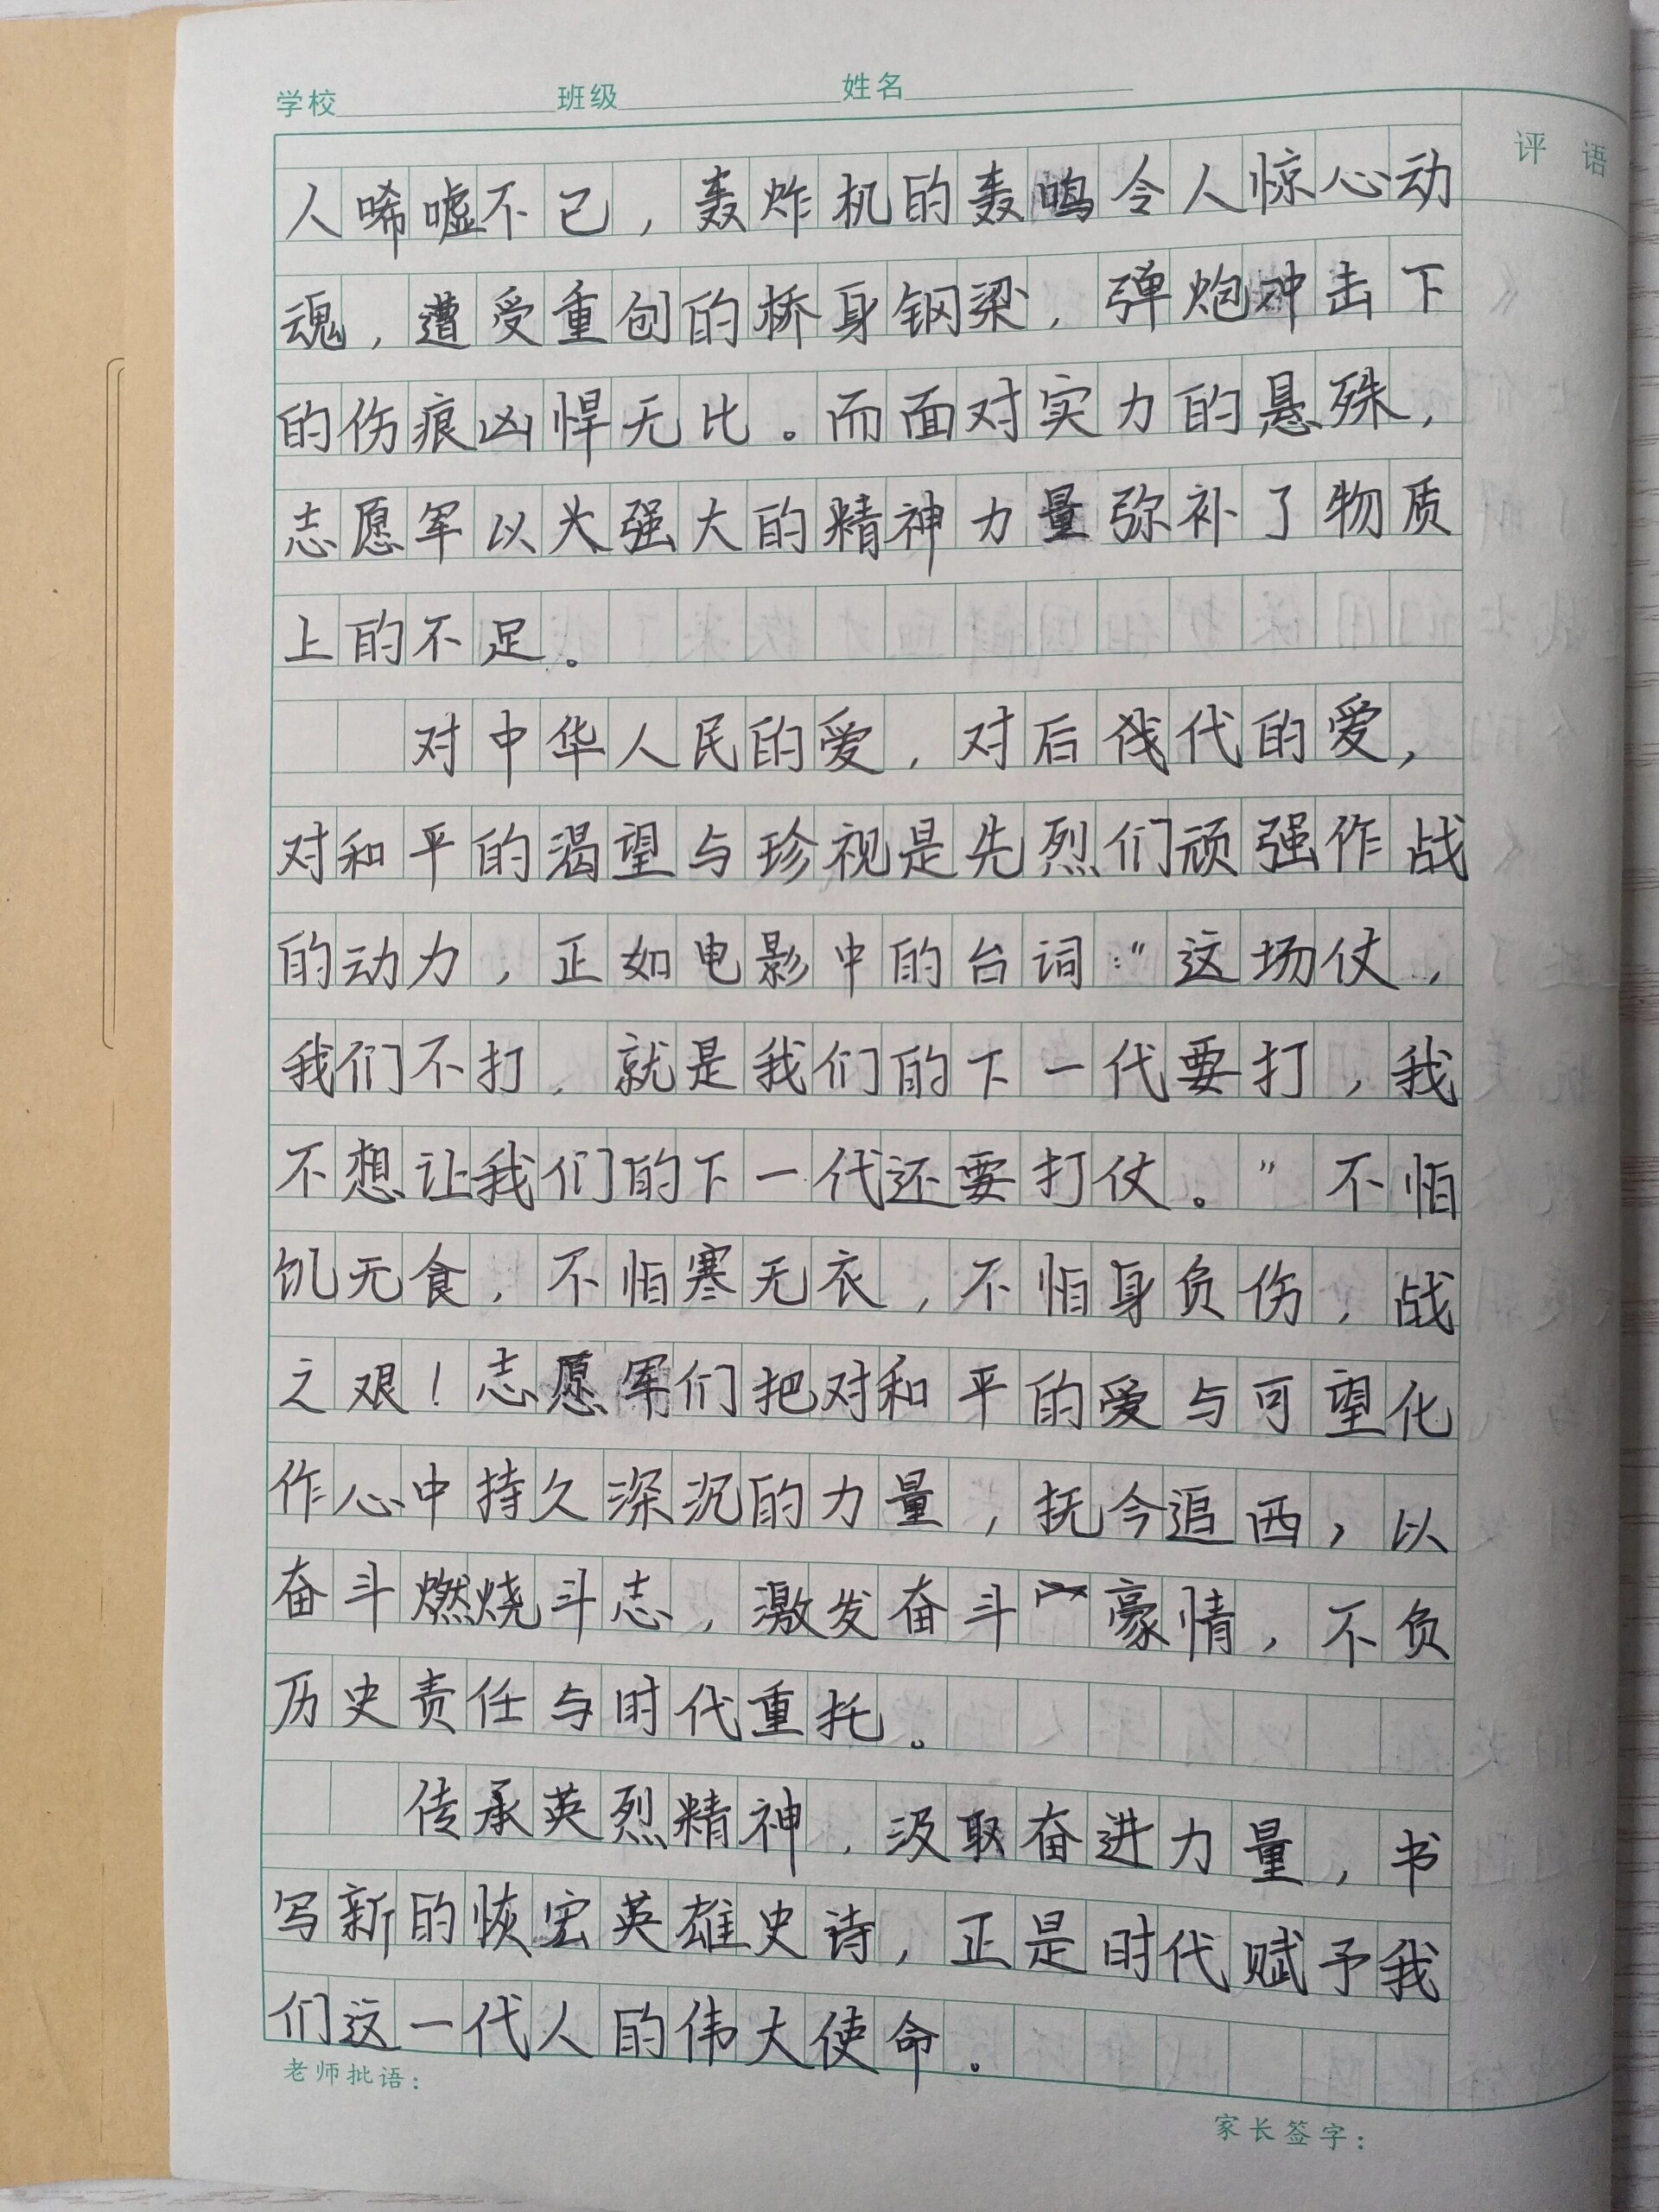 学校 班级 姓名
评语
人唏嘘不已，轰炸机的轰鸣令人惊心动
魂，遭受重创的桥身钢梁，弹炮冲击下
的伤痕凶悍无比。而面对实力的悬殊，
志愿军以强大的精神力量弥补了物质
上的不足。
对中华人民的爱，对后代的爱，
对和平的渴望与珍视是先烈们顽强作战
的动力，正如电影中的台词："这场仗，
我们不打，就是我们的下一代要打，我
不想让我们的下一代还要打仗。"不怕
饥无食，不怕寒无衣，不怕身负伤，战
之艰！志愿军们把对和平的爱与可望化
作心中持久深沉的力量，抚今追西，以
奋斗燃烧斗志，激发奋斗豪情，不负
历史责任与时代重托。
传承英烈精神，汲取奋进力量，书
写新的恢宏英雄史诗，正是时代赋予我
们这一代人的伟大使命。
老师批语：
家长签字：